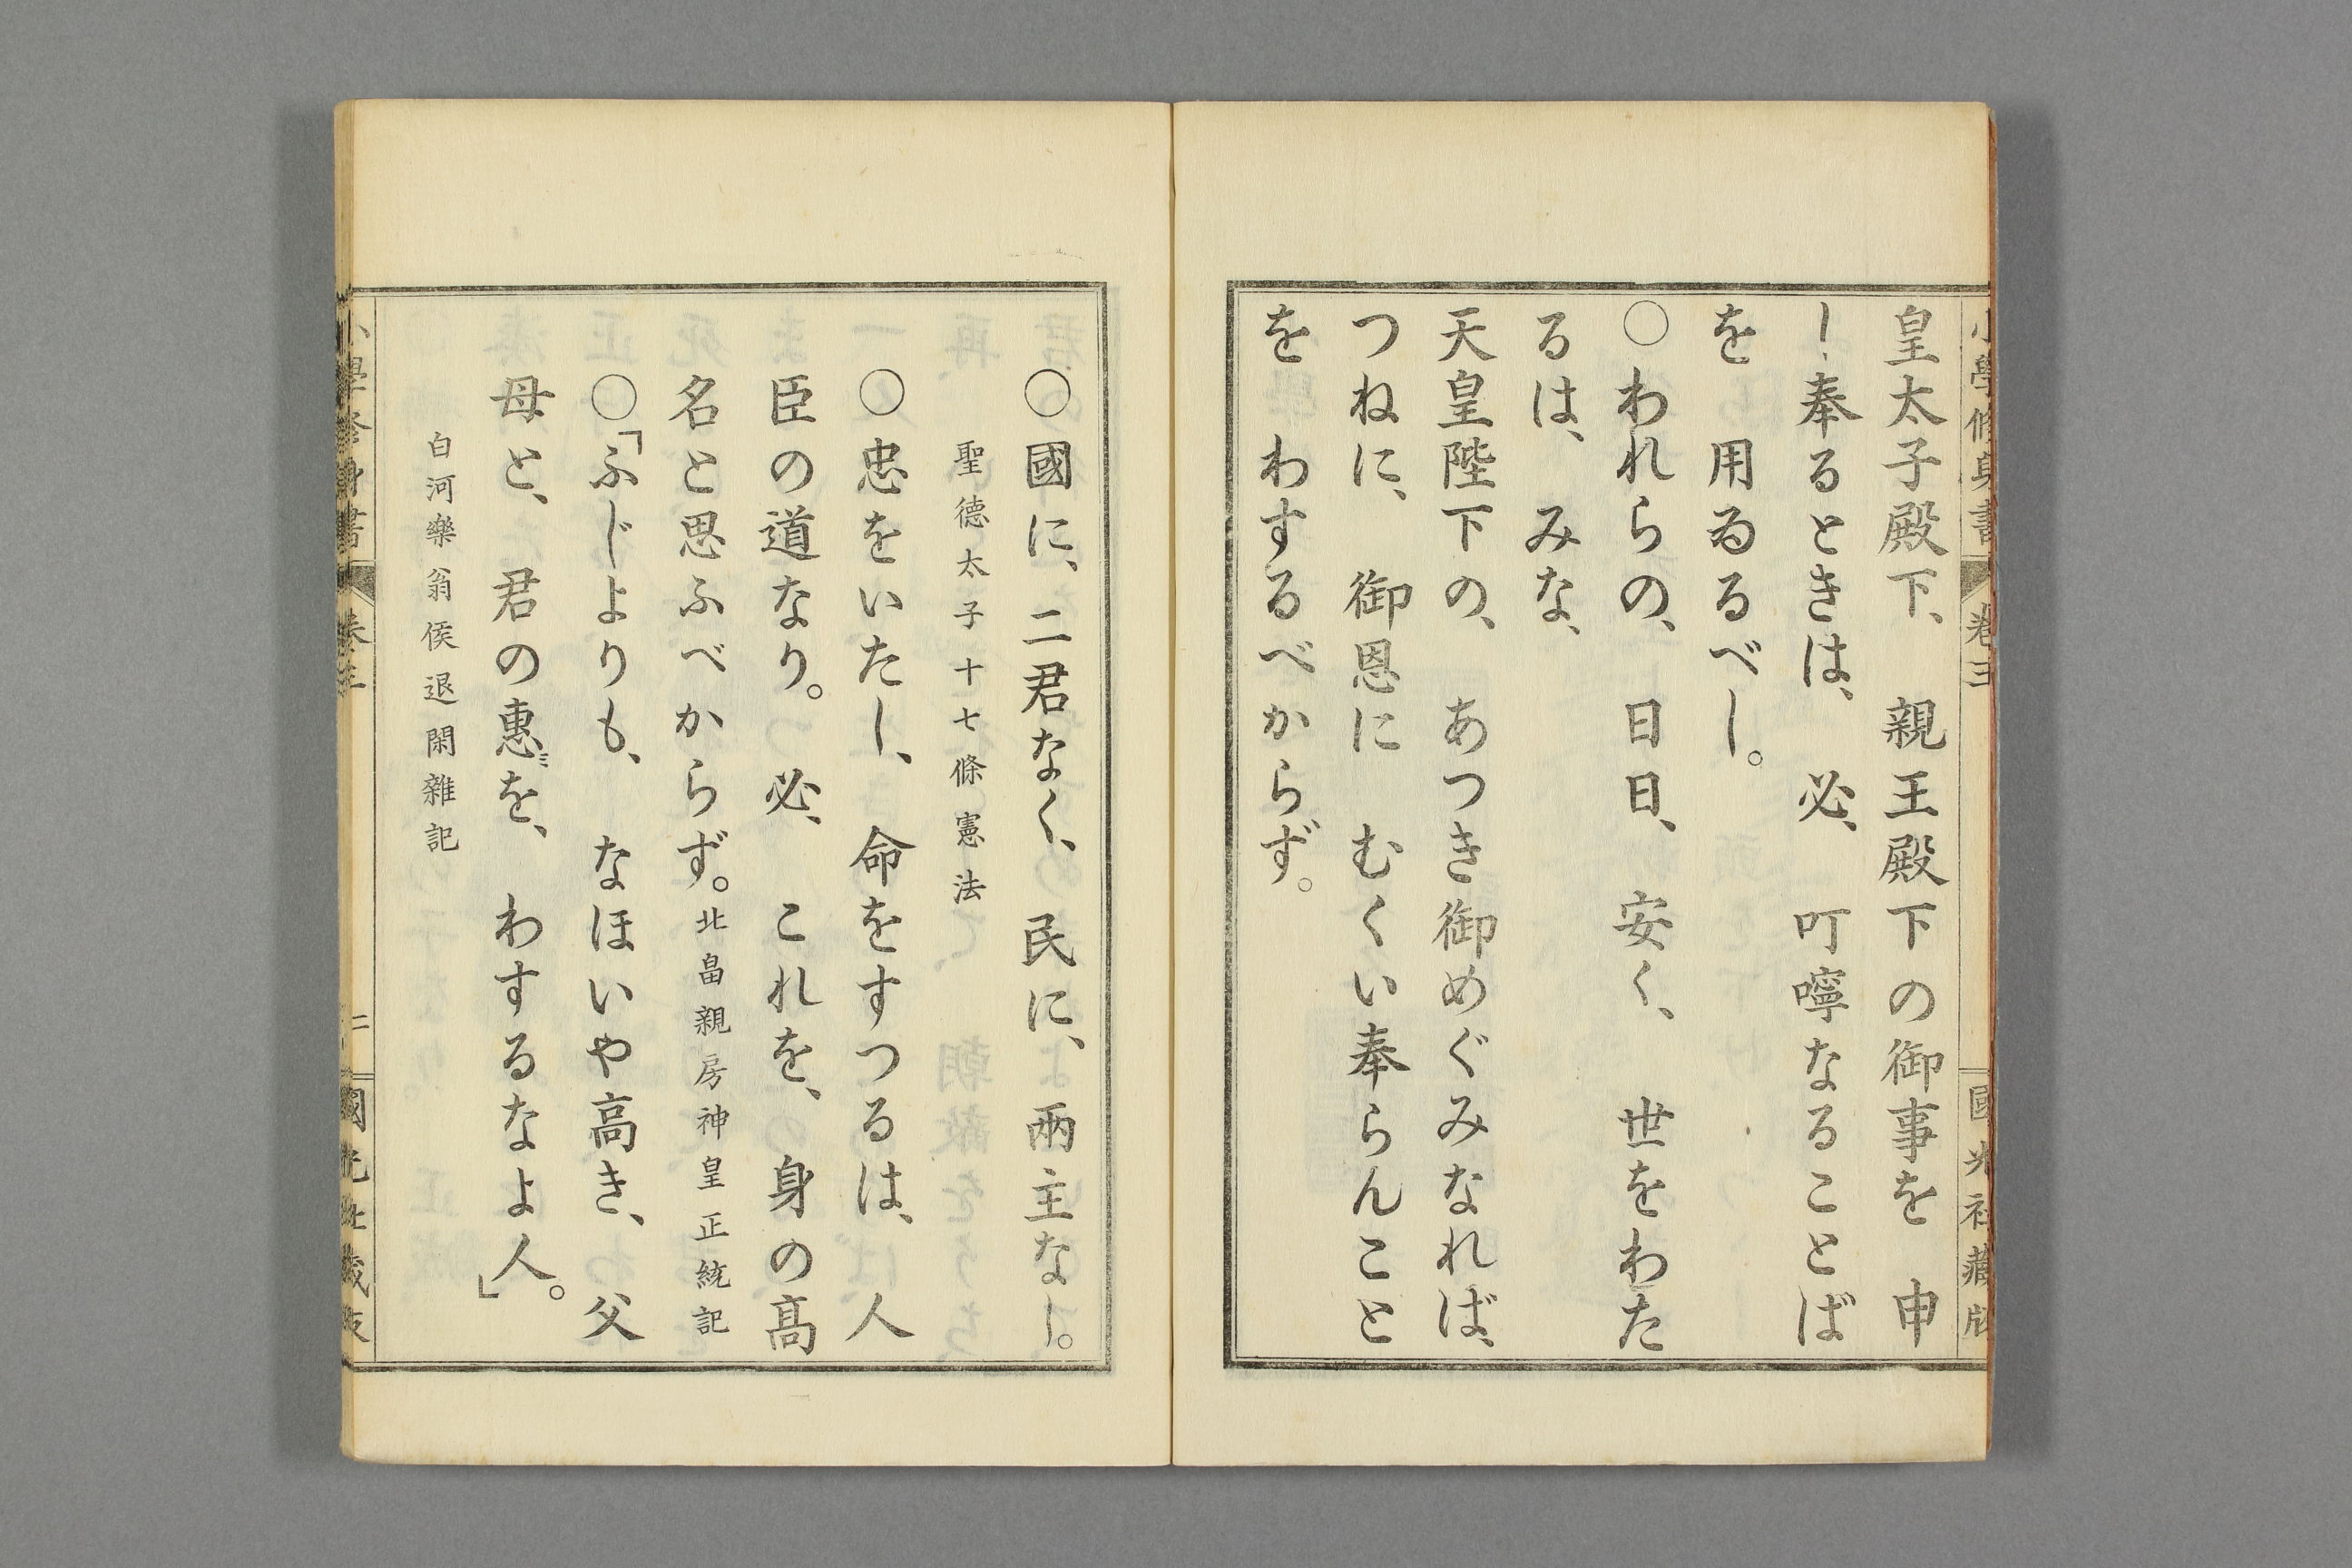 小學修身書 卷三 國光社藏版
皇太子殿下、親王殿下の御事を 申
し奉るときは、必、叮嚀なることば
を 用ゐるべし。
○われらの、日日、安く、世をわた
るは、みな、
天皇陛下の、あつき御めぐみなれば、
つねに、御恩に むくい奉らんこと
を わするべからず。
○國に、二君なく、民に、兩主なし。
聖德太子十七條憲法
○忠をいたし、命をすつるは、人
臣の道なり。必、これを、身の高
名と思ふべからず。北畠親房神皇正統記
○「ふじよりも、なほいや高き、父
母と、君の惠ミを、わするなよ人。」
白河樂翁侯退閑雜記
小學修身書 卷三 二 國光社藏版